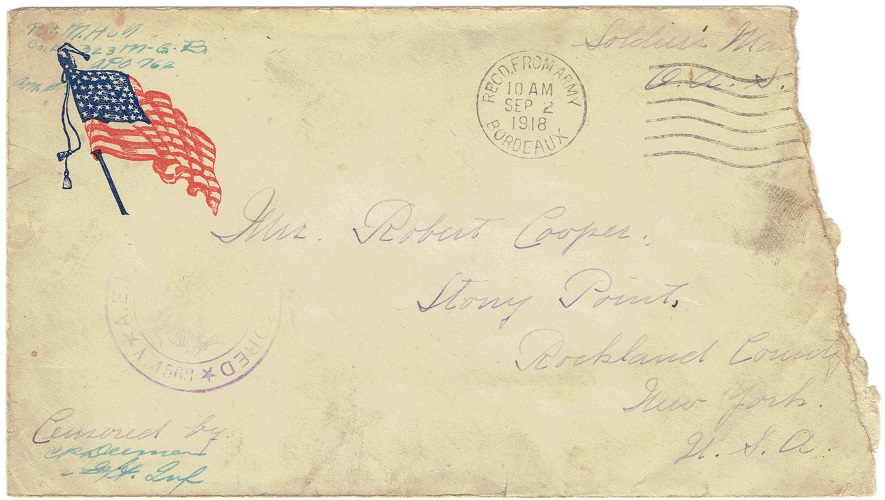 M. Holl
323 M-G-B
APO 762
Soldier's Mai
O. A. S.
REC'D. FROM ARMY
10 AM
SEP 2
1918
BORDEAUX
Mrs. Robert Cooper.
Stony Point,
Rockland County
New York.
U. S. A.
A.E.
ORED
1563
Censored by
Inf